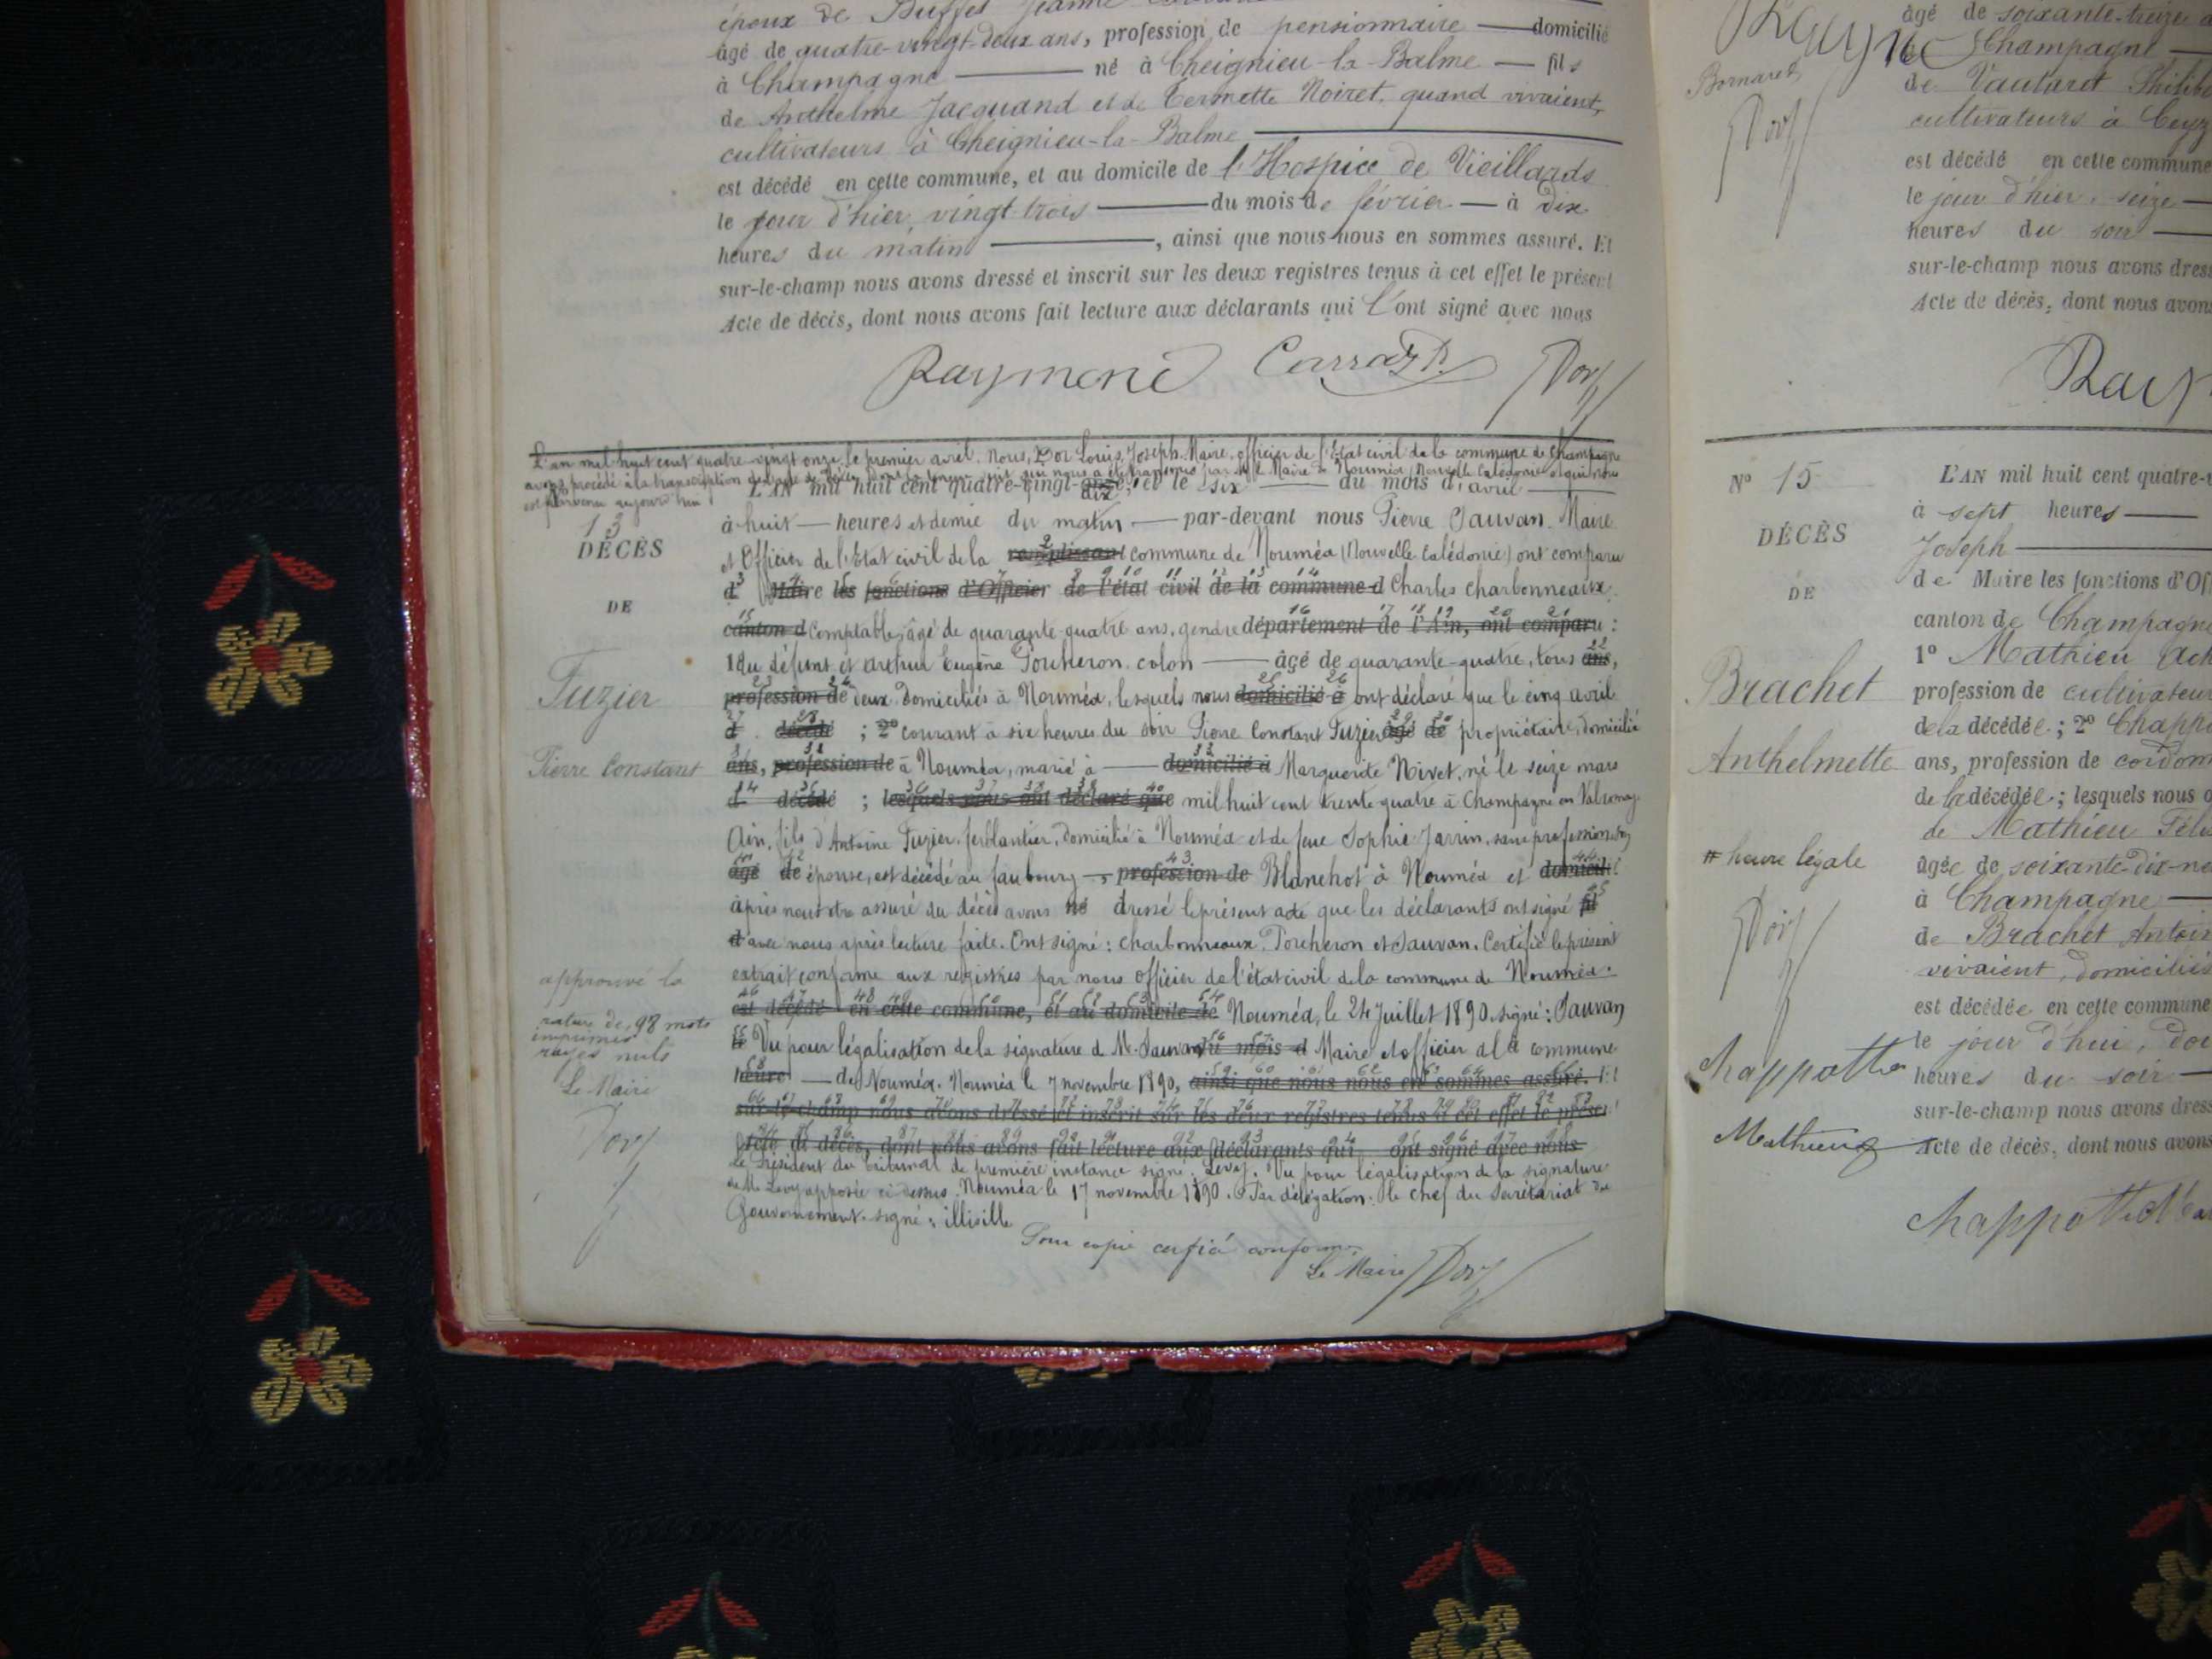 époux de Buffet Jeanne
âgé de quatre-vingt-deux ans, profession de pensionnaire domicilié
à Champagne né à Cheignieu-la-Balme fils
de Anthelme Jacquand et de Termette Noiret, quand vivaient,
cultivateurs à Cheignieu-la-Balme
est décédé en cette commune, et au domicile de l'Hospice de Vieillards
le jour d'hier, vingt-trois du mois de février à dix
heures du matin, ainsi que nous nous en sommes assuré. Et
sur-le-champ nous avons dressé et inscrit sur les deux registres tenus à cet effet le présent
Acte de décès, dont nous avons fait lecture aux déclarants qui l'ont signé avec nous
Raymond Carraz
L'an mil huit cent quatre-vingt onze, le premier avril. Nous, Dor Louis, Joseph, Maire, officier de l'Etat civil de la commune de Champagne
avons procédé à la transcription de l'acte de décès dont la teneur suit qui nous a été transmis par M. le Maire de Nouméa (Nouvelle Calédonie) et qui nous
est parvenu aujourd'hui
L'AN mil huit cent quatre-vingt-onze dix, et le six du mois d'avril
à huit heures et demie du matin par-devant nous Pierre Sauvan Maire
et Officier de l'Etat civil de la 2 remplissant commune de Nouméa (Nouvelle Calédonie) ont comparu
d Maire les fonctions d'Officier de l'état civil de la commune d Charles Charbonneaux
canton d Comptable, âgé de quarante-quatre ans, gendre département de l'Ain, ont comparu :
1 du défunt et Arthur Eugène Porcheron, colon âgé de quarante-quatre, tous ans,
profession de deux domiciliés à Nouméa, lesquels nous domicilié à ont déclaré que le cinq avril
d décédé ; 2° courant à six heures du soir Pierre Constant Fuzier âgé de propriétaire, domicilié
ans, profession de à Nouméa, marié à domicilié à Marguerite Nivet, né le seize mars
d décédé ; lesquels nous ont déclaré que mil huit cent trente quatre à Champagne en Valromey
Ain, fils d'Antoine Fuzier, ferblantier, domicilié à Nouméa et de feue Sophie Jarrin, sans profession son
âgé de épouse, est décédé au faubourg profession de Blanchot à Nouméa et domicilié
après nous être assuré du décès avons né dressé le présent acte que les déclarants ont signé fil
d avec nous après lecture faite. Ont signé : Charbonneaux, Porcheron et Sauvan. Certifié le présent
extrait conforme aux registres par nous officier de l'état civil de la commune de Nouméa.
est décédé en cette commune, et au domicile de Nouméa, le 24 Juillet 1890. signé : Sauvan
le Vu pour légalisation de la signature d M. Sauvan du mois d Maire et officier d la commune
heure de Nouméa. Nouméa le 7 novembre 1890, ainsi que nous nous en sommes assuré. Et
sur-le-champ nous avons dressé et inscrit sur les deux registres tenus à cet effet le présent
Acte de décès, dont nous avons fait lecture aux déclarants qui ont signé avec nous
Le Président du Tribunal de première instance signé : Levy. Vu pour légalisation de la signature
de M. Levy apposée ci-dessus. Nouméa le 17 novembre 1890. Par délégation : le chef du Secrétariat du
Gouvernement. signé : illisible
Pour copie certifié conforme
Le Maire Dor
13
DÉCÈS
DE
Fuzier
Pierre Constant
approuvé la
rature de 98 mots
imprimés
rayés nuls
Le Maire
Dor
Bornaret
Dor
âgé de soixante-treize
à Champagne
de Vautaret Philibe
cultivateurs à Ceyz
est décédé en cette commune
le jour d'hier, seize
heures du soir
sur-le-champ nous avons dres
Acte de décès, dont nous avon
Ray
N° 15
DÉCÈS
DE
Brachet
Anthelmette
# heure légale
Dor
Chappotte
Mathieu
L'AN mil huit cent quatre-v
à sept heures
Joseph
de Maire les fonctions d'Of
canton de Champagne
1° Mathieu
profession de cultivateur
de la décédée ; 2° Chapp
ans, profession de cordon
de la décédée ; lesquels nous o
de Mathieu Féli
âgée de soixante-dix-ne
à Champagne
de Brachet Antoin
vivaient, domiciliés
est décédée en cette commune
le jour d'hui, dou
heures du soir
sur-le-champ nous avons dress
Acte de décès, dont nous avons
Chappotte